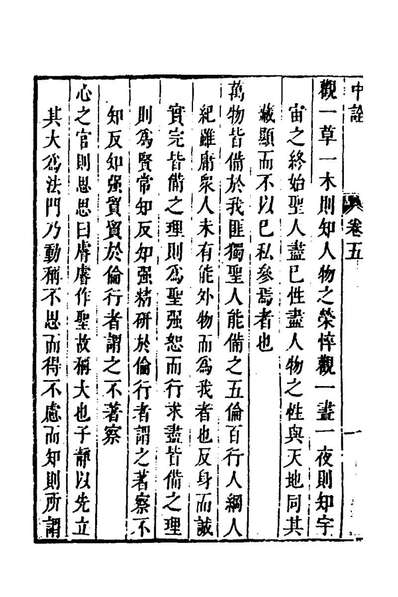 中詮
卷五
一
觀一草一木則知人物之榮悴觀一晝一夜則知宇
宙之終始聖人盡已性盡人物之性與天地同其
蔽顯而不以已私參焉者也
萬物皆備於我匪獨聖人能備之五倫百行人綱人
紀雖庸衆人未有能外物而爲我者也反身而誠
實完皆備之理則爲聖强恕而行求盡皆備之理
則爲賢常知反知强精研於倫行者謂之著察不
知反知强貿貿於倫行者謂之不著察
心之官則思思曰睿睿作聖故稱大也子靜以先立
其大爲法門乃動稱不思而得不慮而知則所謂